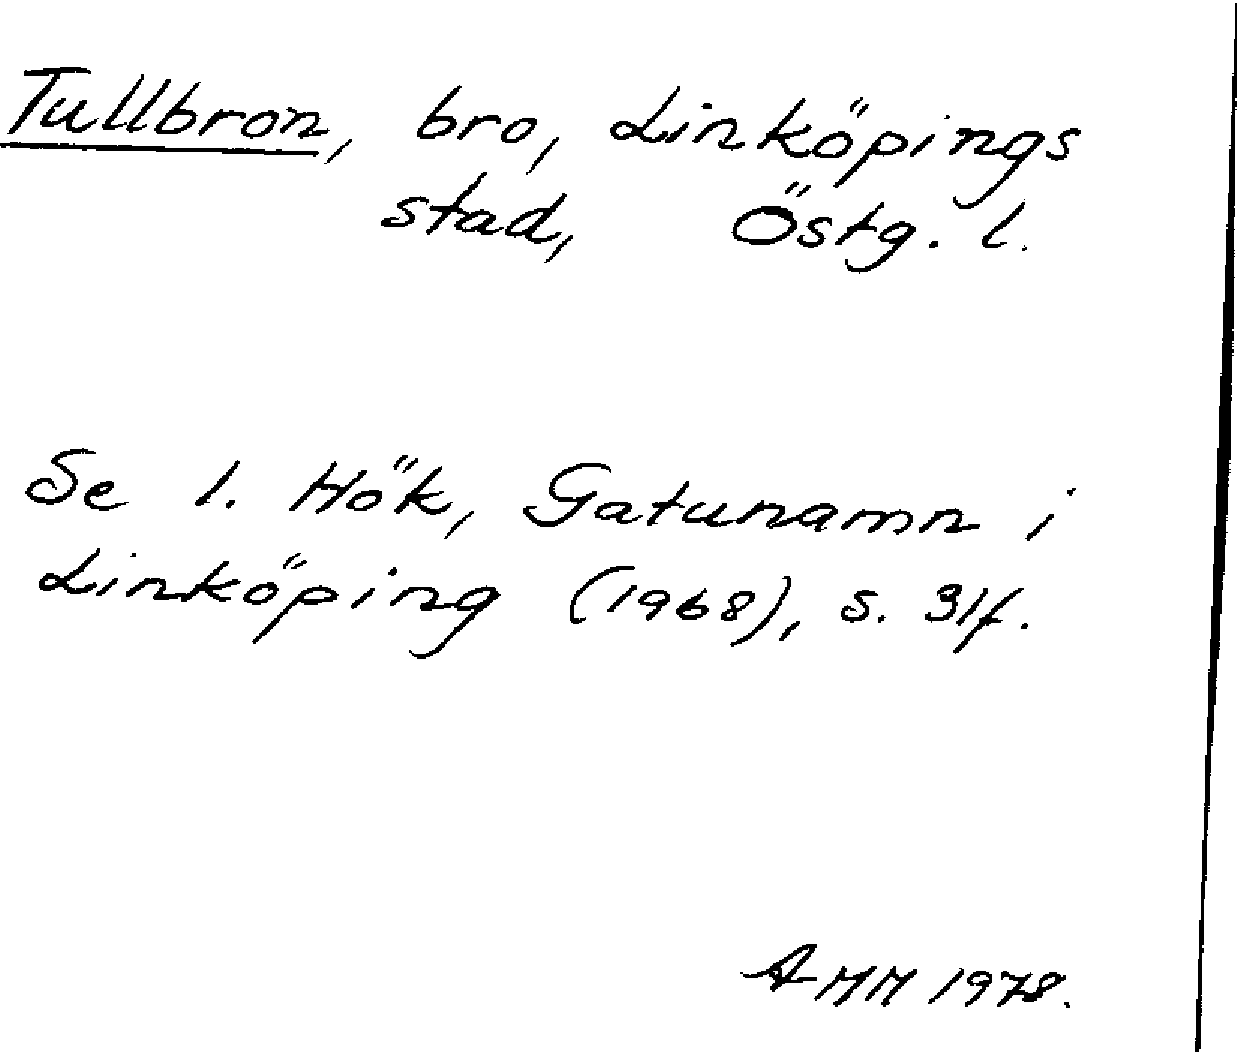 Tullbron, bro, Linköpings
stad, Östg. l.
Se I. Hök, Gatunamn i
Linköping (1968), s. 31f.
AMM 1978.